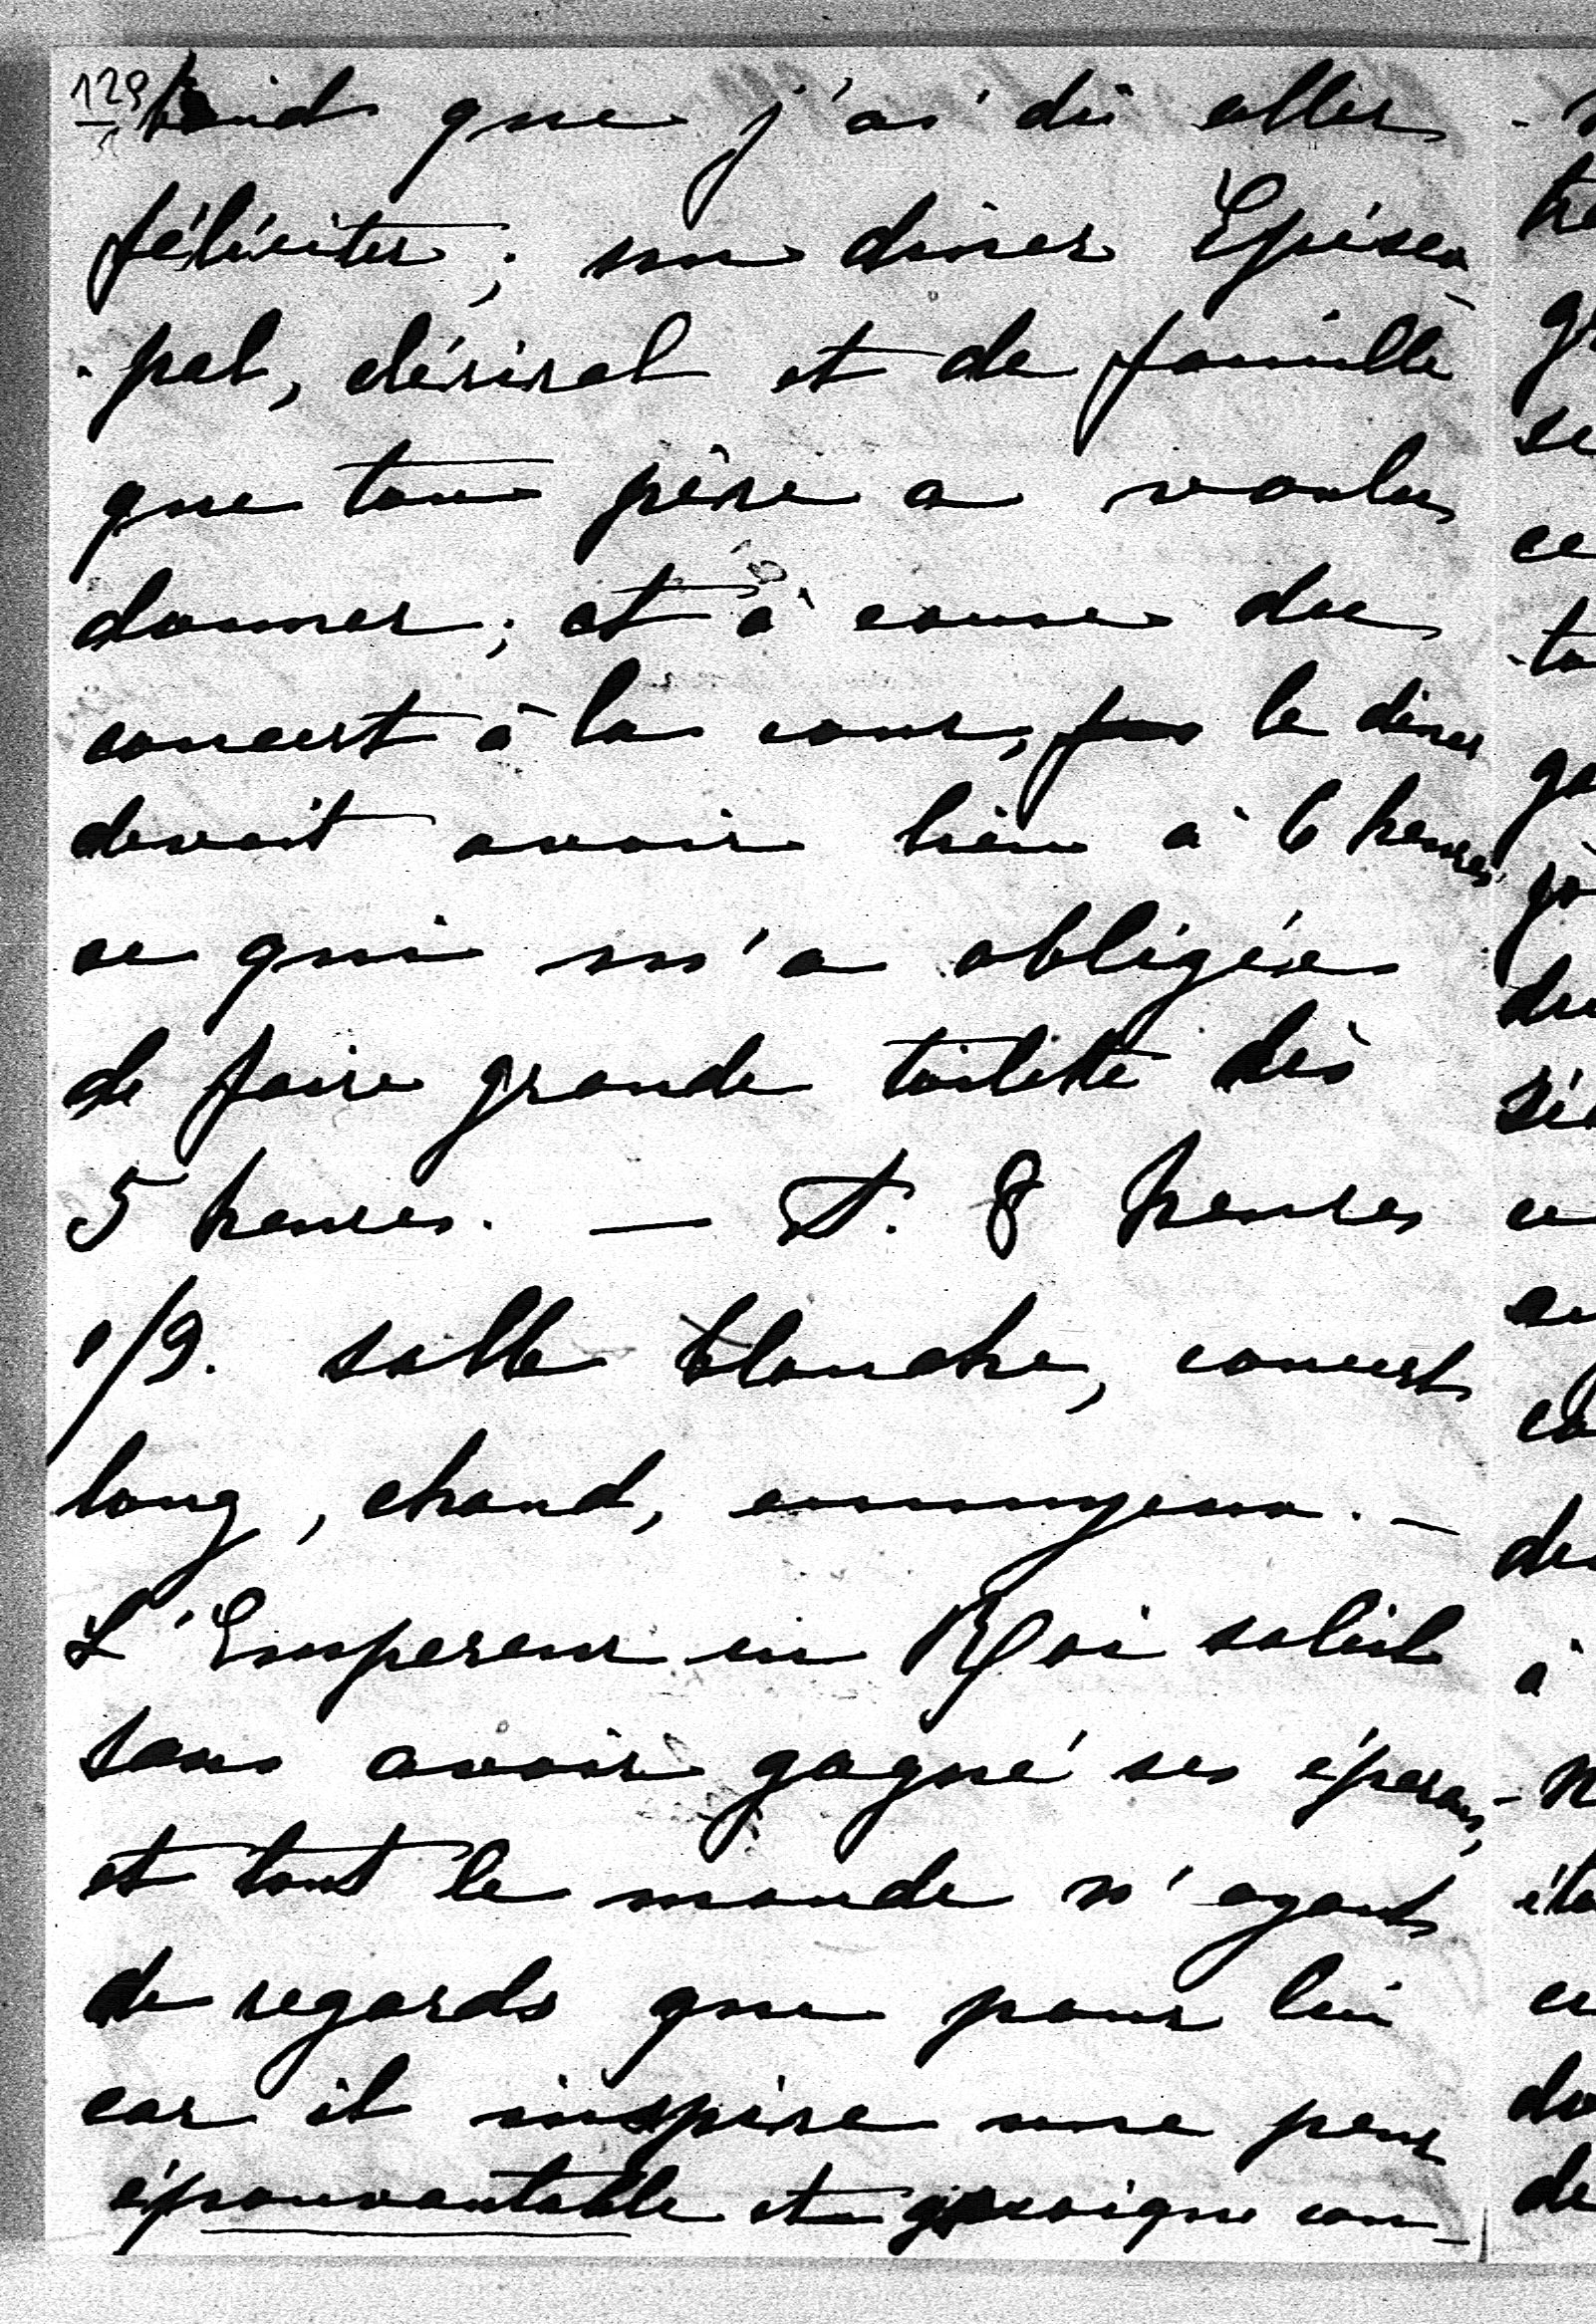 129
que j'ai dû aller
féliciter; un diner Episco-
-pal, clérical et de famille
que ton père a voulu
donner; et à cause du
concert à la cour, le diner
devait avoir lieu à 6 heures
ce qui m'a obligée
de faire grande toilette dès
5 heures. — A. 8 heures
1/2. salle blanche, concert
long, chaud, ennuyeux. —
L'Empereur en Roi soleil
sans avoir gagné ses éperons,
et tout le monde n'ayant
de regards que pour lui
car il inspire une peur
épouvantable et quoique con-